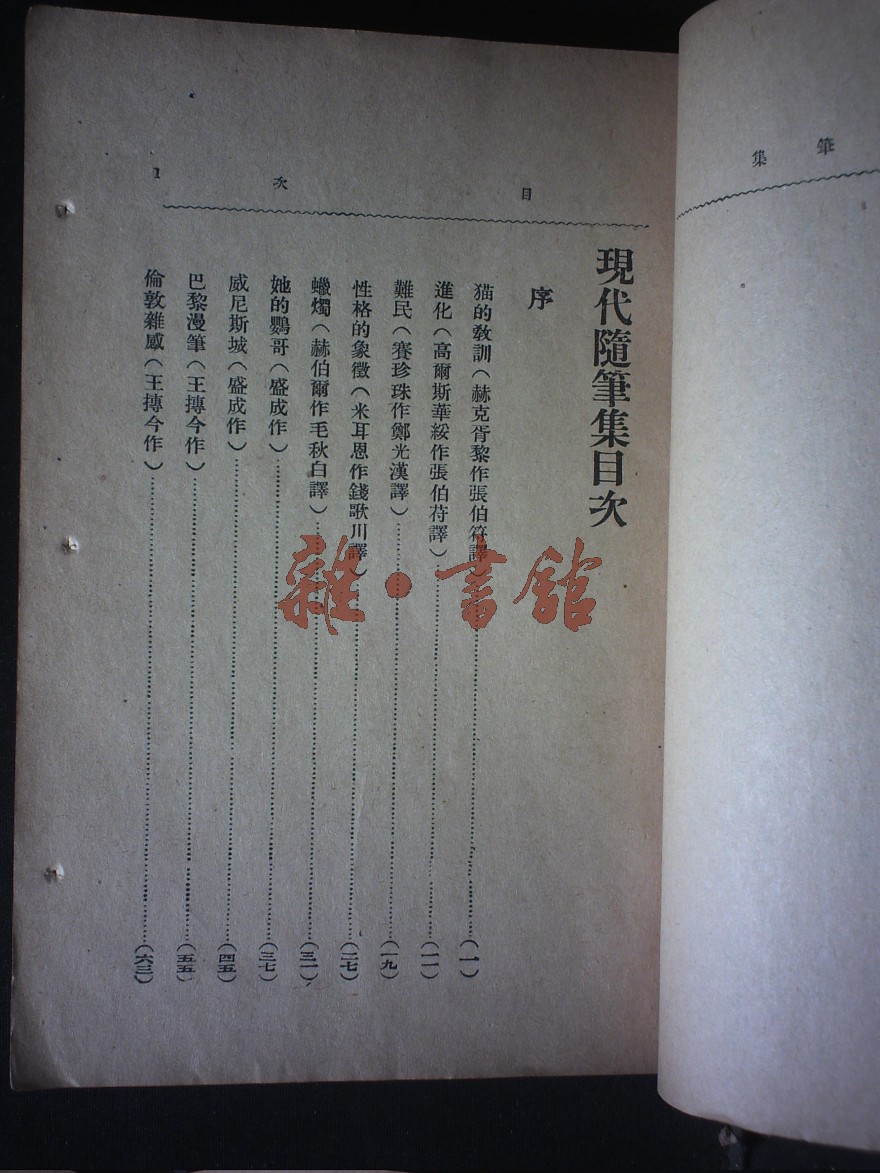 筆集
目次
1
現代隨筆集目次
序
猫的教訓（赫克胥黎作張伯符譯）……（一）
進化（高爾斯華綏作張伯苻譯）……（一一）
難民（賽珍珠作鄭光漢譯）……（一九）
性格的象徵（米耳恩作錢歌川譯）……（二七）
蠟燭（赫伯爾作毛秋白譯）……（三一）
她的鸚哥（盛成作）……（三七）
威尼斯城（盛成作）……（四五）
巴黎漫筆（王摶今作）……（五五）
倫敦雜感（王摶今作）……（六三）
雜·書館